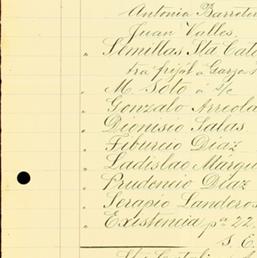 Antonio Barrote
Juan Valles
" Semillas Sta Cata
tra frijol a Garza
" M. Soto á s/c
" Gonzalo Arreola
" Dionisio Salas
" Tiburcio Díaz
" Ladislao Márqu
" Prudencio Díaz
" Serapio Landeros
" Existencia pa 22
S. E.